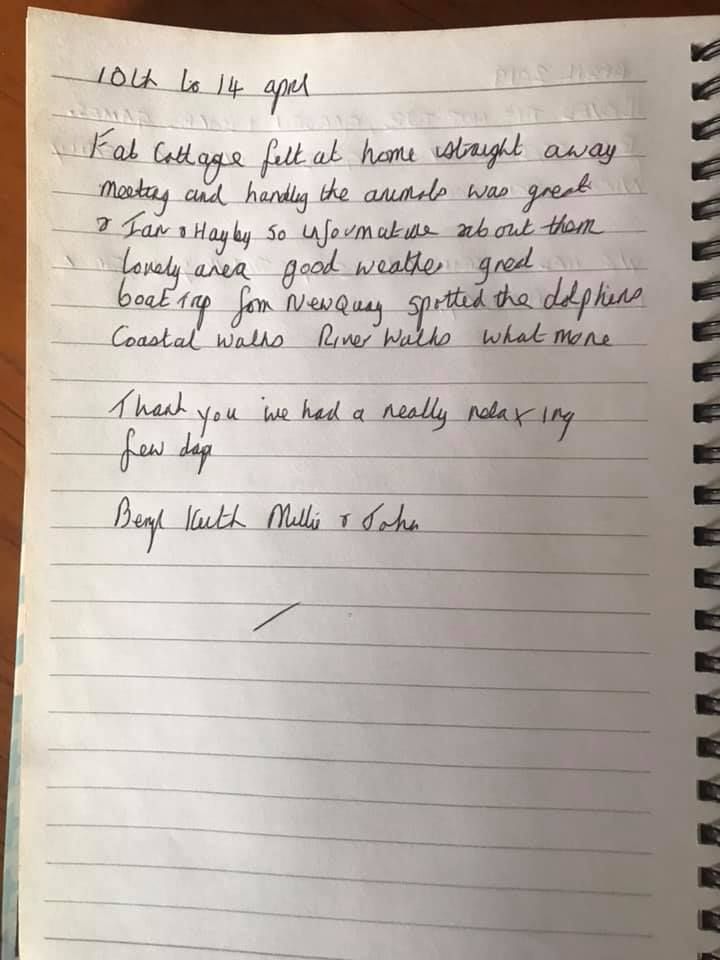 10th to 14 april
Fab Cottage felt at home straight away
meeting and handlig the animals was great
& Ian & Hayby so informative about them
Lovely area good weather great
boat trip from NewQuay spotted the dolphins
Coastal walks River Walks what more
Thank you we had a really relaxing
few days
Beryl Keith Millie & John